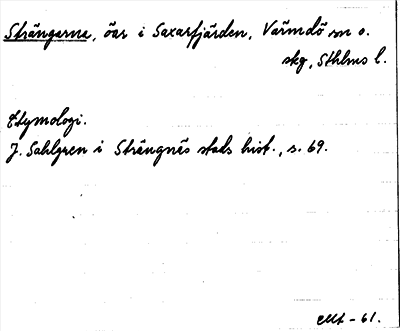 Strängarna, öar i Saxarfjärden, Värmdö sn o.
skg, Sthlms l.
Etymologi.
J. Sahlgren i Strängnäs stads hist., s. 69.
-61.